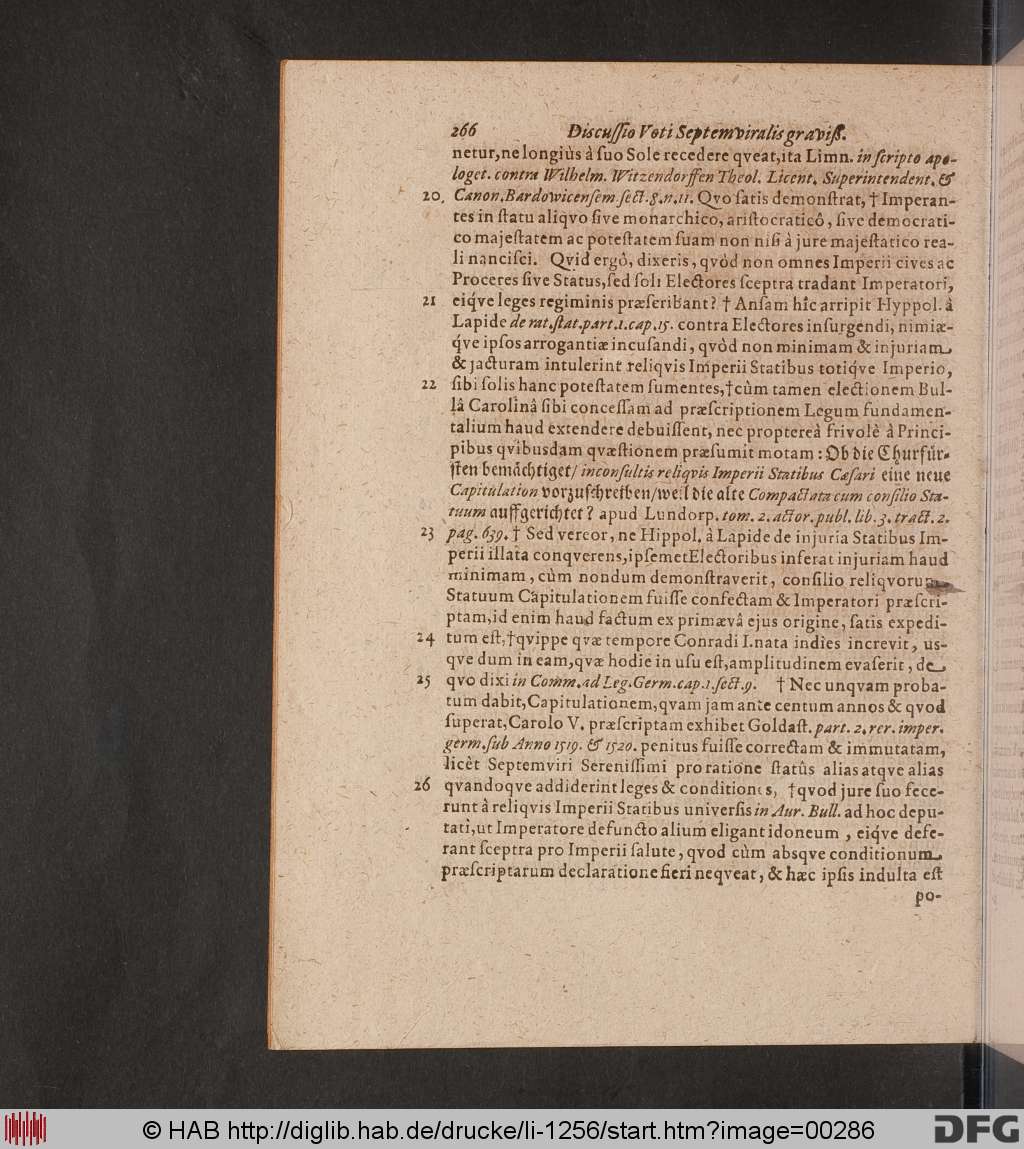 266 Discuſſio Voti Septemviralis graviß.
netur,ne longiùs à ſuo Sole recedere qveat,ita Limn. in ſcripto apo-
loget. contra Wilhelm. Witzendorffen Theol. Licent. Superintendent. &
20. Canon.Bardowicenſem.ſect.8.n.11. Qvo ſatis demonſtrat, † Imperan-
tes in ſtatu aliqvo ſive monarchico, ariſtocraticô, ſive democrati-
co majeſtatem ac poteſtatem ſuam non niſi à jure majeſtatico rea-
li nanciſci. Qvid ergô, dixeris, qvòd non omnes Imperii cives ac
Proceres ſive Status,ſed ſoli Electores ſceptra tradant Imperatori,
21 eiq́ve leges regiminis præſcribant? † Anſam hîc arripit Hyppol. â
Lapide de rat.ſtat.part.1.cap.15. contra Electores inſurgendi, nimiæ-
q́ve ipſos arrogantiæ incuſandi, qvòd non minimam & injuriam
& jacturam intulerint reliqvis Imperii Statibus totiq́ve Imperio,
22 ſibi ſolis hanc poteſtatem ſumentes,†cùm tamen electionem Bul-
lâ Carolinâ ſibi conceſſam ad præſcriptionem Legum fundamen-
talium haud extendere debuiſſent, nec proptereà frivolè à Princi-
pibus qvibusdam qvæſtionem præſumit motam : Ob die Churfür-
ſten bemächtiget/ inconſultis reliqvis Imperii Statibus Cæſari eine neue
Capitulation vorzuſchreiben/weil die alte Compactata cum conſilio Sta-
tuum auffgerichtet? apud Lundorp. tom. 2. actor. publ. lib. 3. tract. 2.
23 pag. 639. † Sed vereor, ne Hippol. à Lapide de injuria Statibus Im-
perii illata conqverens,ipſemet Electoribus inferat injuriam haud
minimam, cùm nondum demonſtraverit, conſilio reliqvorum
Statuum Capitulationem fuiſſe confectam & Imperatori præſcri-
ptam,id enim haud factum ex primævâ ejus origine, ſatis expedi-
24 tum eſt,†qvippe qvæ tempore Conradi I.nata indies increvit, us-
qve dum in eam,qvæ hodie in uſu eſt,amplitudinem evaſerit, de
25 qvo dixi in Comm.ad Leg.Germ.cap.1.ſect.9. † Nec unqvam proba-
tum dabit,Capitulationem,qvam jam ante centum annos & qvod
ſuperat,Carolo V. præſcriptam exhibet Goldaſt. part. 2. rer. imper.
germ.ſub Anno 1519. & 1520. penitus fuiſſe correctam & immutatam,
licèt Septemviri Sereniſſimi pro ratione ſtatûs alias atqve alias
26 qvandoqve addiderint leges & conditiones, †qvod jure ſuo fece-
runt à reliqvis Imperii Statibus univerſis in Aur. Bull. ad hoc depu-
tati,ut Imperatore defuncto alium eligant idoneum , eiq́ve defe-
rant ſceptra pro Imperii ſalute, qvod cùm absqve conditionum
præſcriptarum declaratione fieri neqveat, & hæc ipſis indulta eſt
po-
© HAB http://diglib.hab.de/drucke/li-1256/start.htm?image=00286
DFG